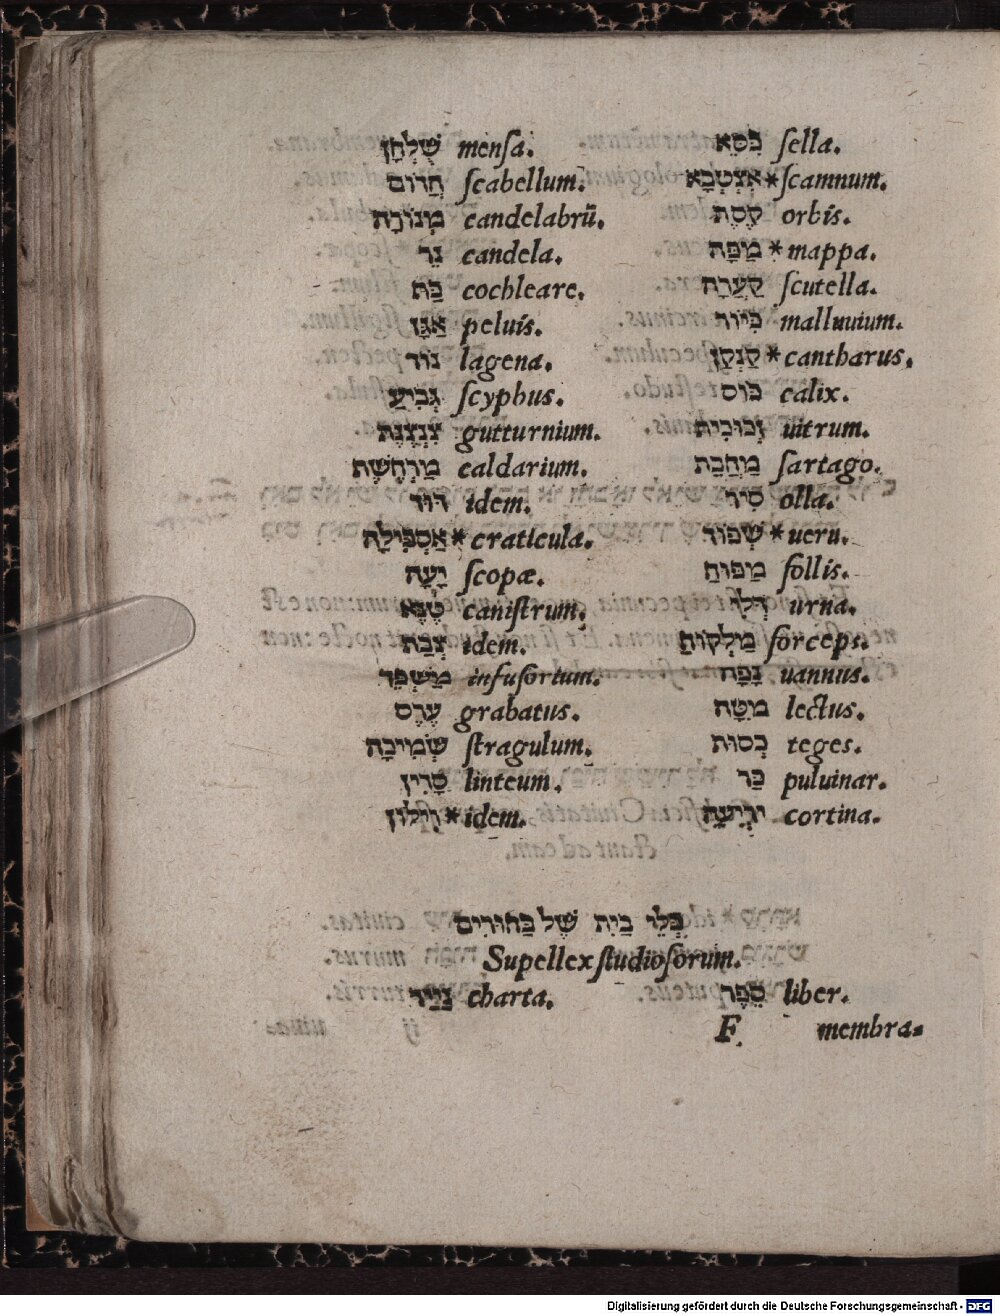 שֻׁלְחָן menſa. כִּסֵּא ſella.
הֲדוֹם ſcabellum. אִצְטְבָא *ſcamnum.
מְנוֹרָה candelabrũ. קֶסֶת orbis.
נֵר candela. מַפָּה *mappa.
כַּת cochleare. קַעֲרָה ſcutella.
אַגָּן peluis. כִּיּוֹר malluuium.
נוֹד lagena. קַנְקַן *cantharus.
גְּבִיעַ ſcyphus. כּוֹס calix.
צִנְצֶנֶת gutturnium. זְכוּכִית uitrum.
מַרְחֶשֶׁת caldarium. מַחֲבַת ſartago.
דּוּד idem. סִיר olla.
אַסְפִּילָה *craticula. שְׁפוּד *ueru.
יָעֶה ſcopæ. מַפּוּחַ follis.
טֶנֶא caniſtrum. דְּלִי urna.
צְבַת idem. מִלְקוֹחַ forceps.
מַשְׁפֵּךְ infuſorium. נָפָה uannus.
עֶרֶס grabatus. מִטָּה lectus.
שְׂמִיכָה ſtragulum. כְּסוּת teges.
סָדִין linteum. כַּר puluinar.
וִילוֹן *idem. יְרִיעָה cortina.
כְּלֵי בַיִת שֶׁל בַּחוּרִים
Supellex ſtudioſorum.
נְיָיר charta. סֵפֶר liber.
F membra=
Digitalisierung gefördert durch die Deutsche Forschungsgemeinschaft - DFG